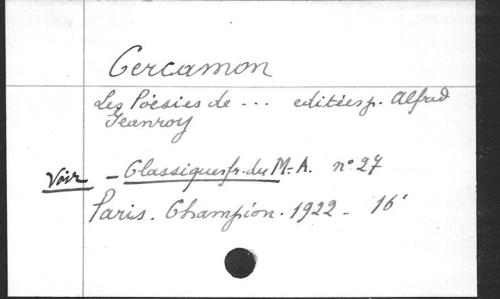 Cercamon
Les Poésies de ... editées p. Alfred
Jeanroy
Voir - Classiques fr. du M.-A. n° 27
Paris. Champion. 1922 - 16°